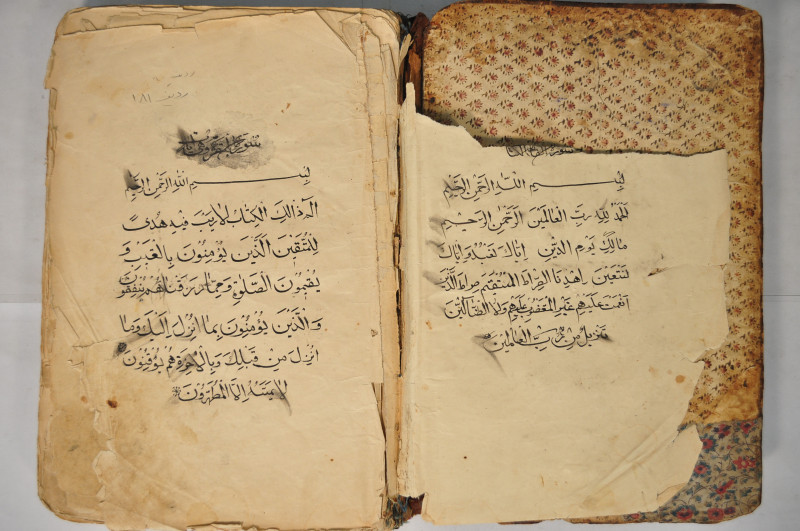 بسم الله الرحمن الرحيم
الحمد لله رب العالمين الرحمن الرحيم
مالك يوم الدين اياك نعبد واياك
نستعين اهدنا الصراط المستقيم صراط الذين
انعمت عليهم غير المغضوب عليهم ولا الضالين
تنزيل من رب العالمين
رديف ١٨١
بسم الله الرحمن الرحيم
الم ذالك الكتاب لا ريب فيه هدى
للمتقين الذين يؤمنون بالغيب و
يقيمون الصلوة ومما رزقناهم ينفقون
والذين يؤمنون بما انزل اليك وما
انزل من قبلك وبالاخرة هم يوقنون
لا يمسه الا المطهرون